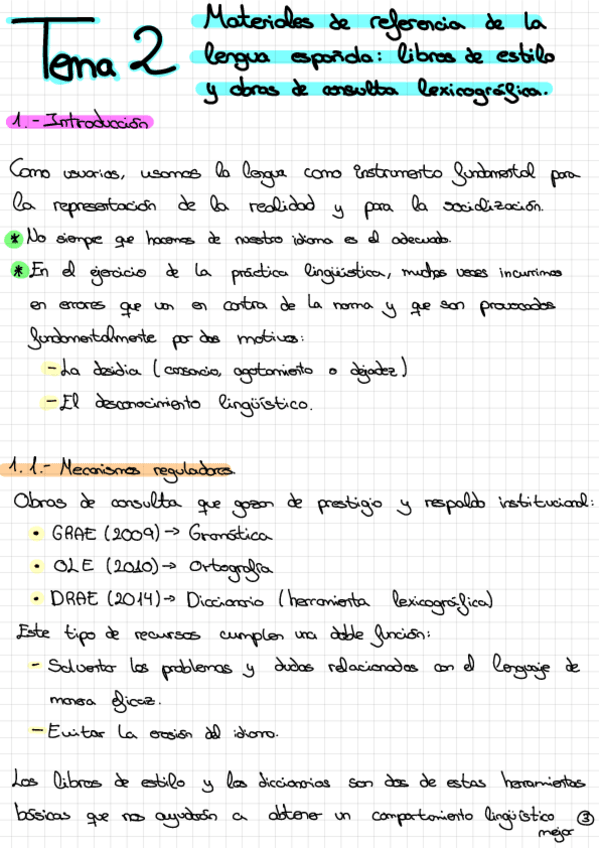 Tema 2
Materiales de referencia de la
lengua española: libros de estilo
y obras de consulta lexicográfica.
1.- Introducción
Como usuarios, usamos la lengua como instrumento fundamental para
la representación de la realidad y para la socialización.
* No siempre que hacemos de nuestro idioma es el adecuado.
* En el ejercicio de la práctica lingüística, muchas veces incurrimos
en errores que van en contra de la norma y que son provocados
fundamentalmente por dos motivos:
- La desidia (cansancio, agotamiento o dejadez)
- El desconocimiento lingüístico.
1.1.- Mecanismos reguladores.
Obras de consulta que gozan de prestigio y respaldo institucional:
• GRAE (2009) → Gramática
• OLE (2010) → Ortografía
• DRAE (2014) → Diccionario (herramienta lexicográfica)
Este tipo de recursos cumplen una doble función:
- Solventar los problemas y dudas relacionados con el lenguaje de
manera eficaz.
- Evitar la erosión del idioma.
Los libros de estilo y los diccionarios son dos de estas herramientas
básicas que nos ayudarán a obtener un comportamiento lingüístico
mejor
3